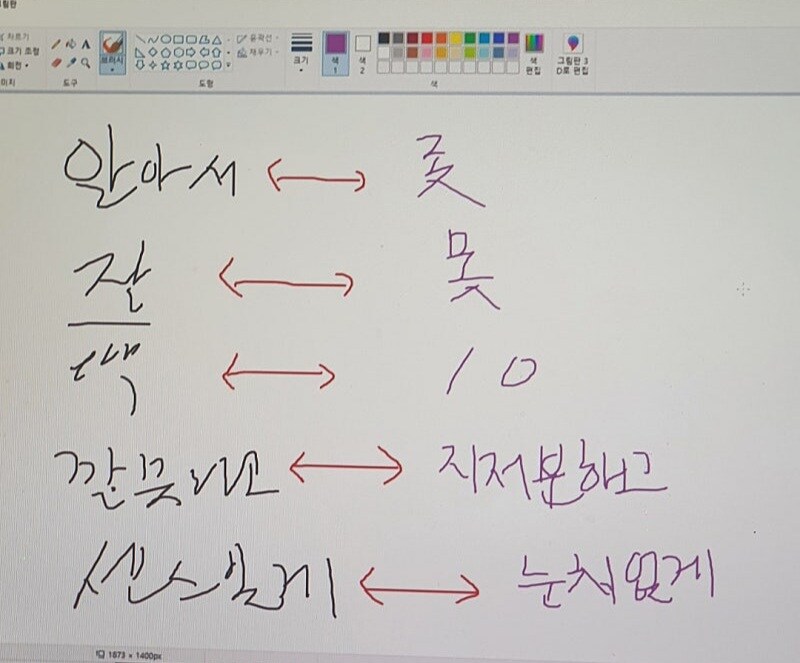 자르기
크기 조정
회전
브러시
윤곽선
채우기
크기
색 1
색 2
색 편집
그림판 3D로 편집
도구
도형
색
알아서 ↔ 좆
잘 ↔ 못
백 ↔ 10
깔끗하고 ↔ 지저분하고
센스있게 ↔ 눈치없게
1873 × 1400px